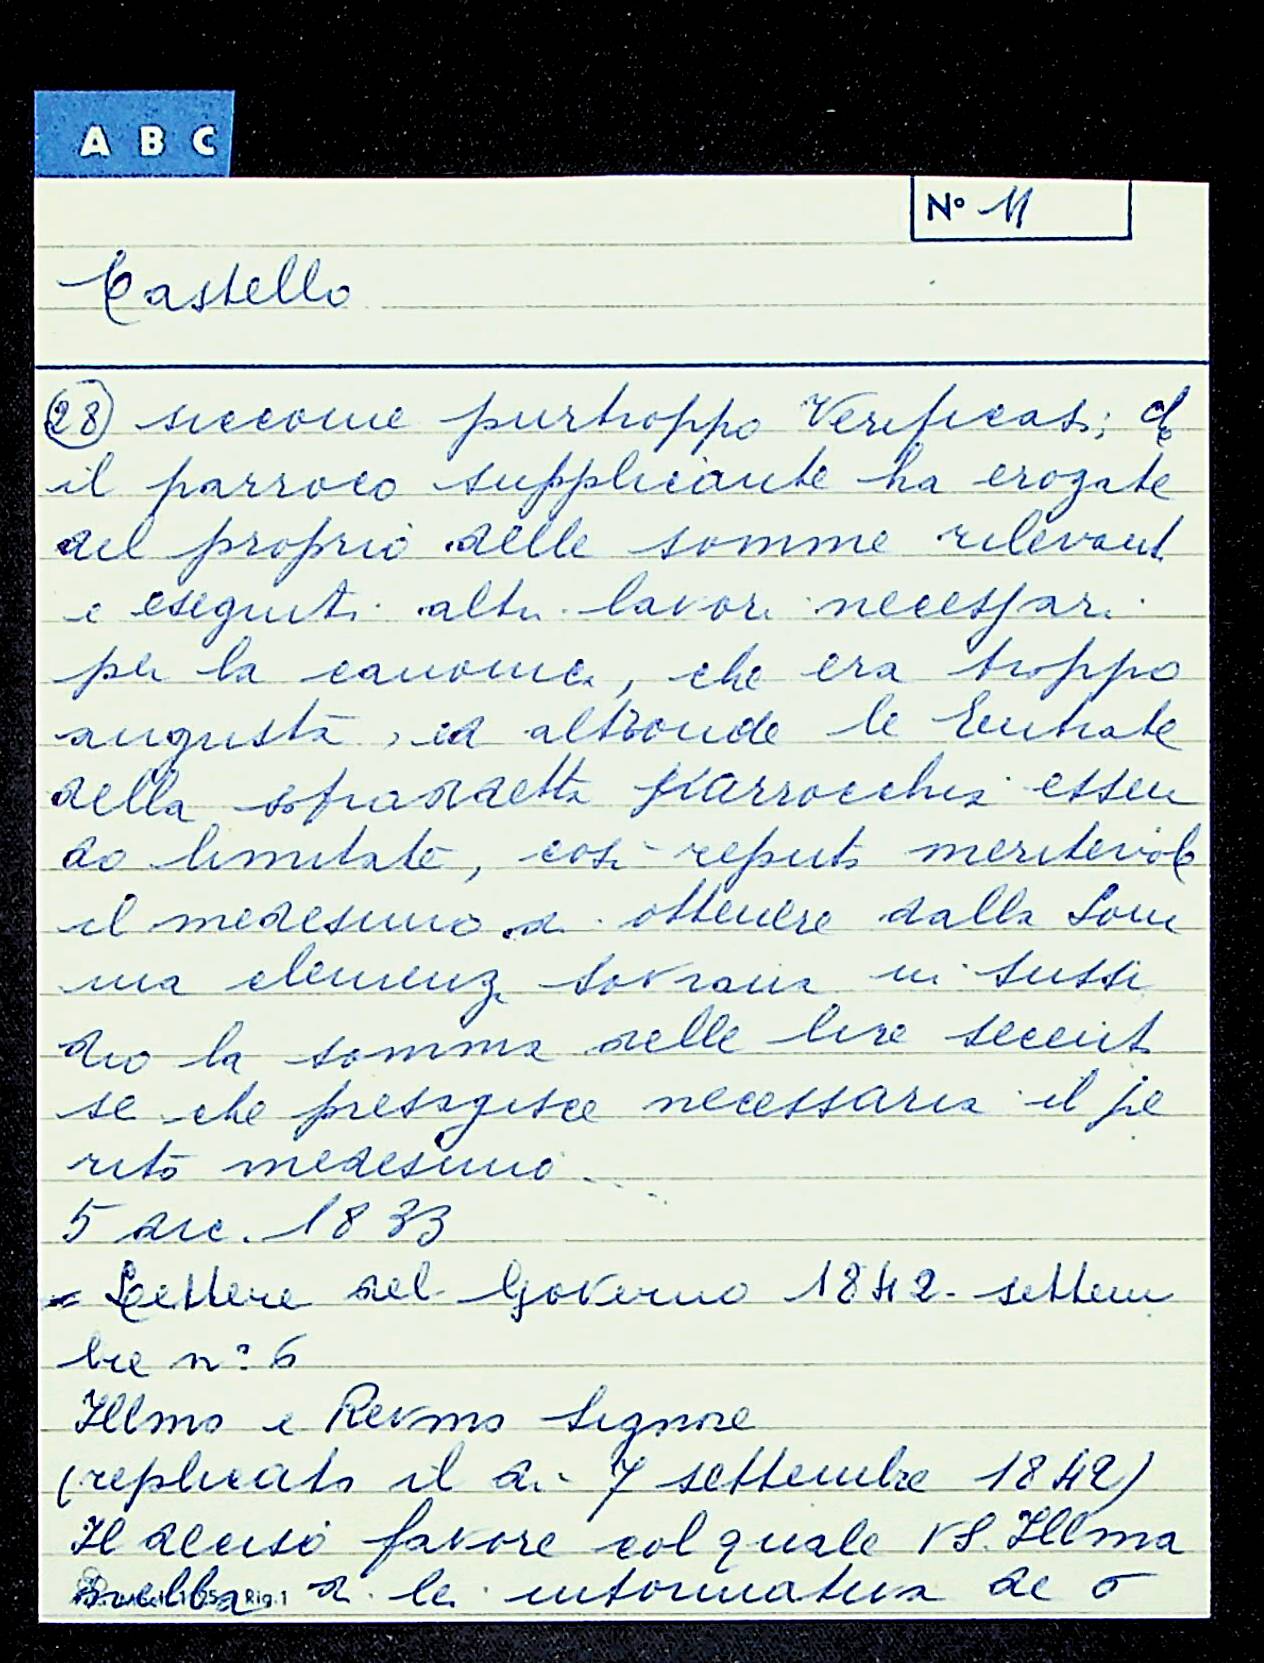 A B C
N° 11
Castello
28 siccome purtroppo Verificasi; che
il parroco supplicante ha erogate
del proprio delle somme rilevanti
e eseguiti altri lavori necessari
per la canonica, che era troppo
angusta, ed altronde le Entrate
della sopraddetta Parrocchia essen
do limitate, così reputo meritevole
il medesimo di ottenere dalla Som
ma clemenza Sovrana in sussi
dio la somma delle lire
se che presagisce necessaria il pe
rito medesimo
5 dic. 1833
= Lettere del Governo 1842 - settem
bre n° 6
Illmo e Revmo Signore
(replicato il dì 7 settembre 1842)
Il deciso favore col quale VS. Illma
nella di lei informativa de 5
Rig. 1